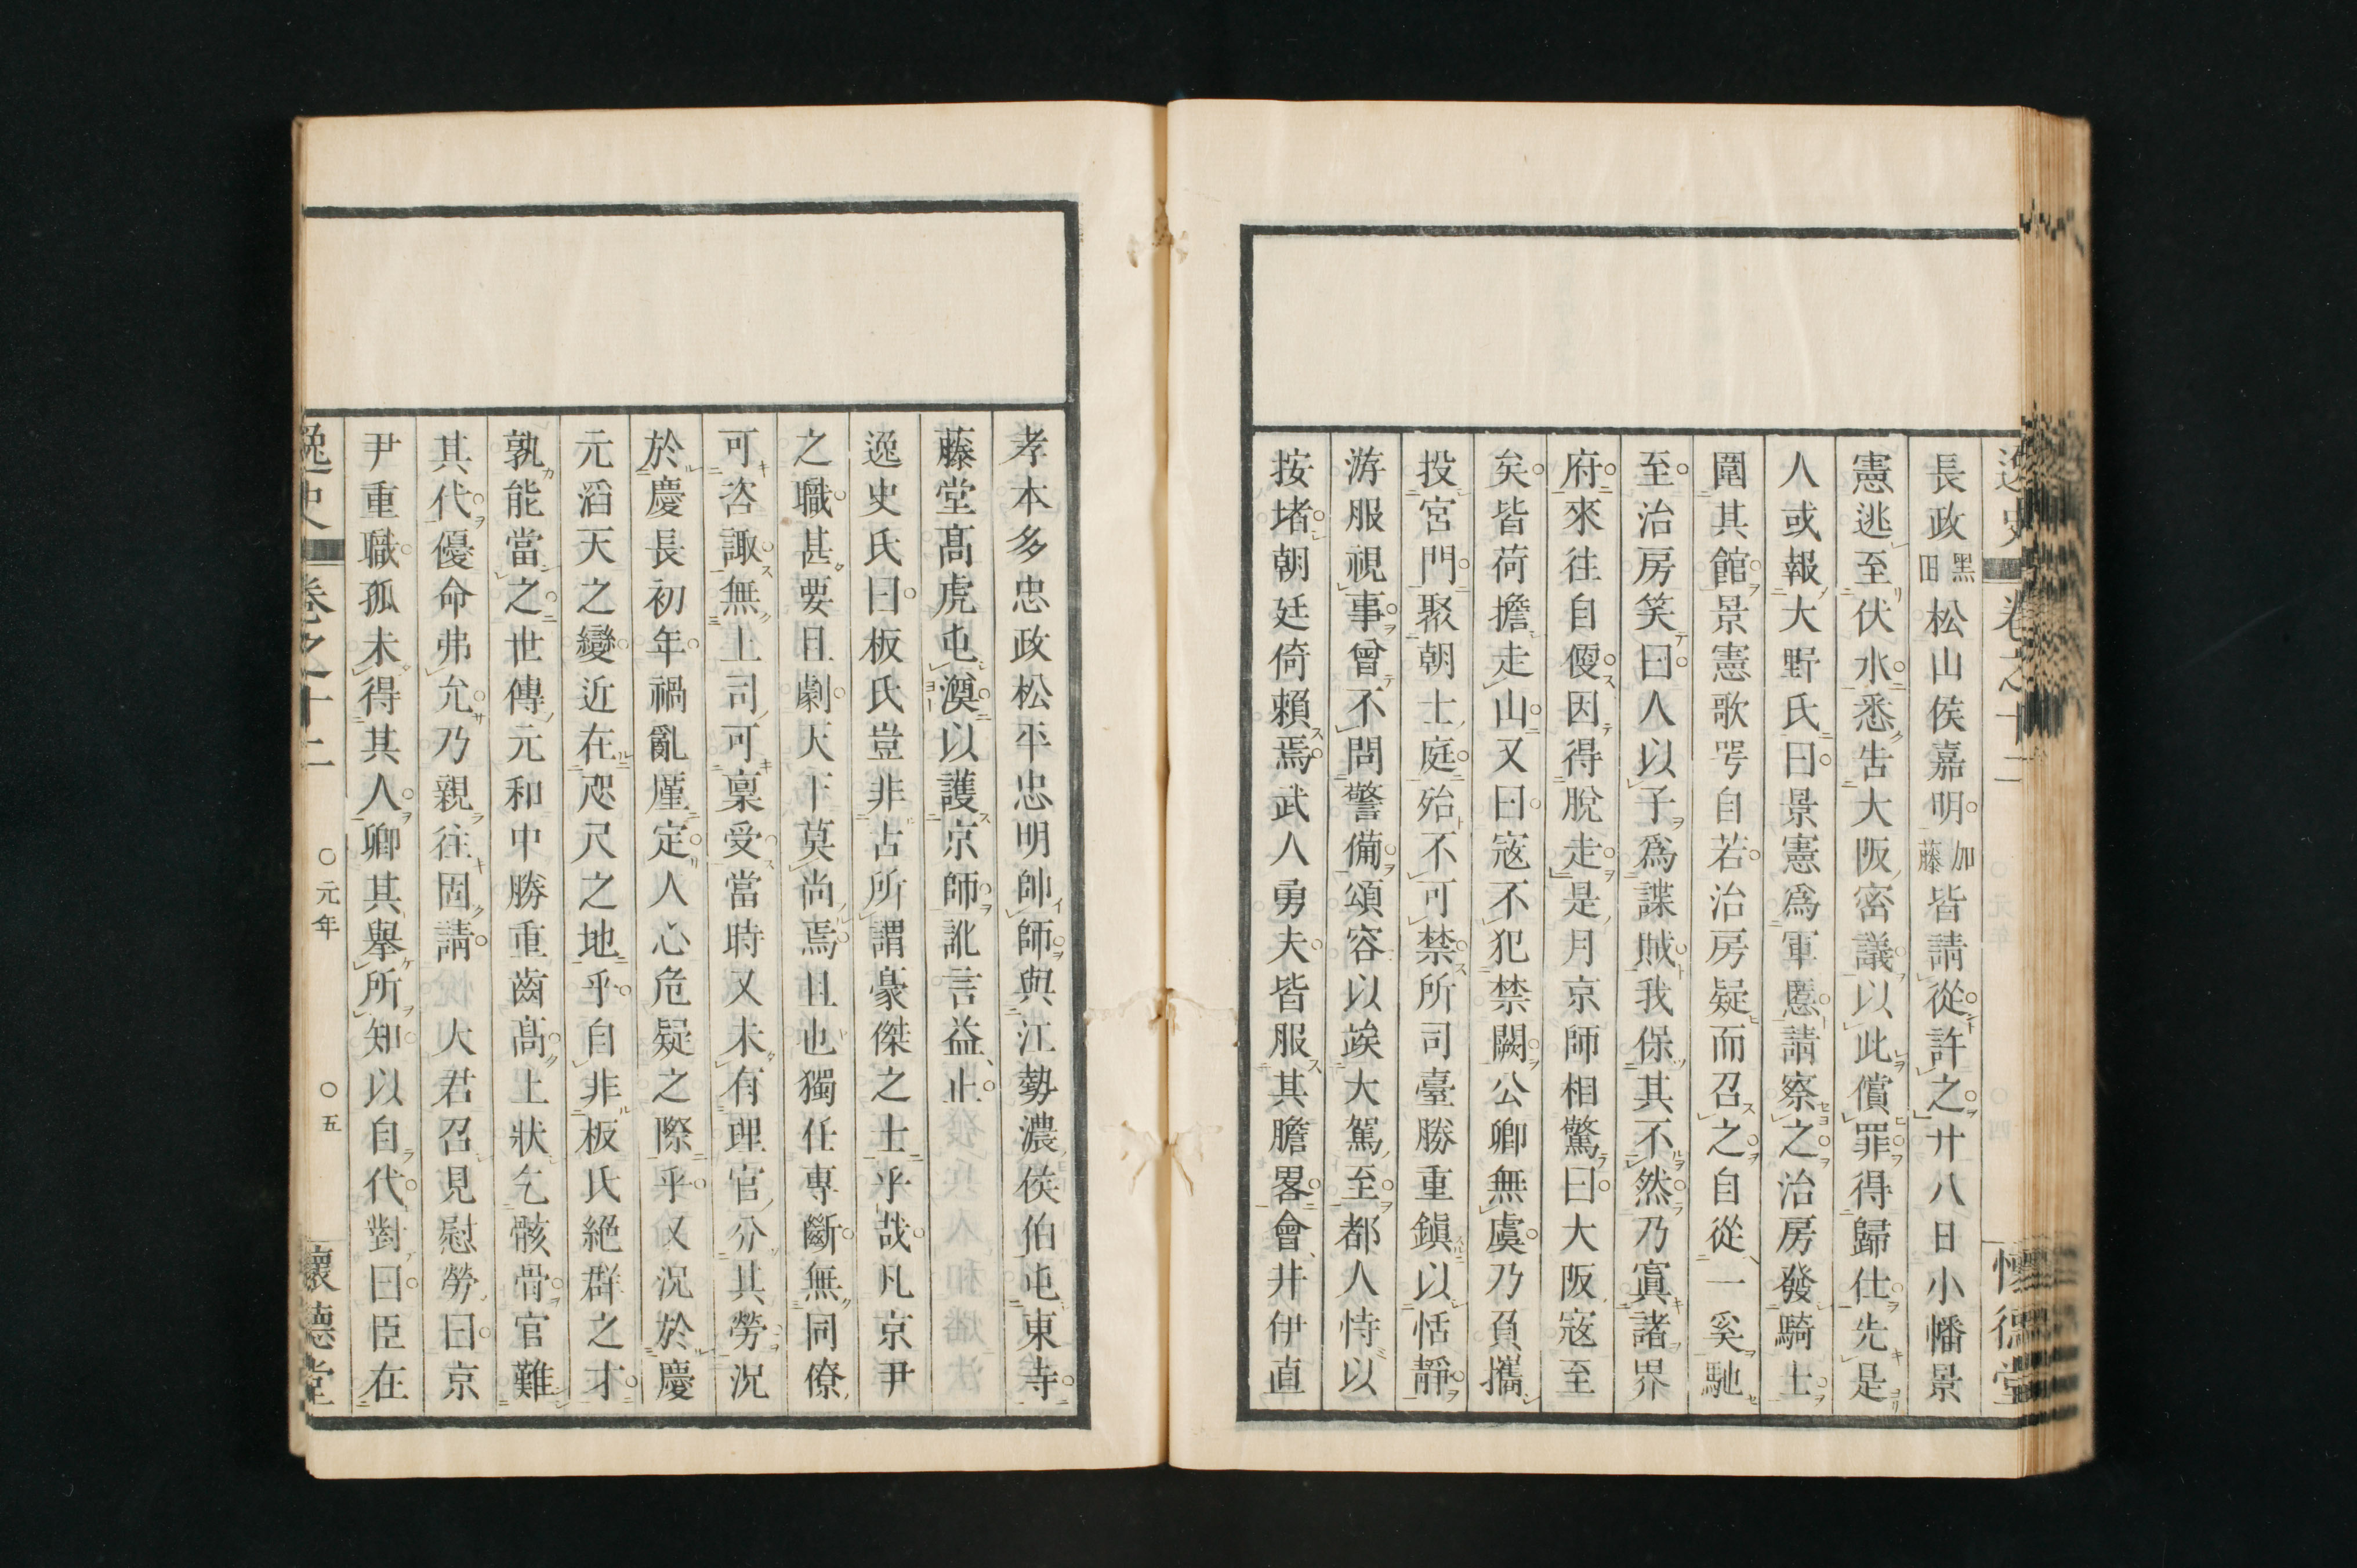 逸史 卷之十二 懷德堂
長政黑田松山侯嘉明加藤皆請從許之廿八日小幡景
憲逃至伏水悉告大阪密議以此償罪得歸仕先是
人或報大野氏曰景憲爲軍慝請察之治房發騎士
圍其館景憲歌咢自若治房疑而召之自從一奚馳
至治房笑曰人以子爲諜賊我保其不然乃寘諸界
府來往自便因得脫走是月京師相驚曰大阪寇至
矣皆荷擔走山又曰寇不犯禁闕公卿無虞乃負攜
投宮門聚朝士庭殆不可禁所司臺勝重鎭以恬靜
游服視事曾不問警備頌容以竢大駕至都人恃以
按堵朝廷倚賴焉武人勇夫皆服其膽畧會井伊直
孝本多忠政松平忠明帥師與江勢濃侯伯屯東寺
藤堂髙虎屯澳以護京師訛言益止
逸史氏曰板氏豈非古所謂豪傑之士乎哉凡京尹
之職甚要且劇天下莫尚焉且也獨任專斷無同僚
可咨諏無上司可稟受當時又未有理官分其勞況
於慶長初年禍亂厪定人心危疑之際乎又況於慶
元滔天之變近在咫尺之地乎自非板氏絶群之才
孰能當之世傳元和中勝重齒髙上狀乞骸骨官難
其代優命弗允乃親往固請 大君召見慰勞曰京
尹重職孤未得其人卿其擧所知以自代對曰臣在
逸史 卷之十二 〇元年 〇五 懷德堂